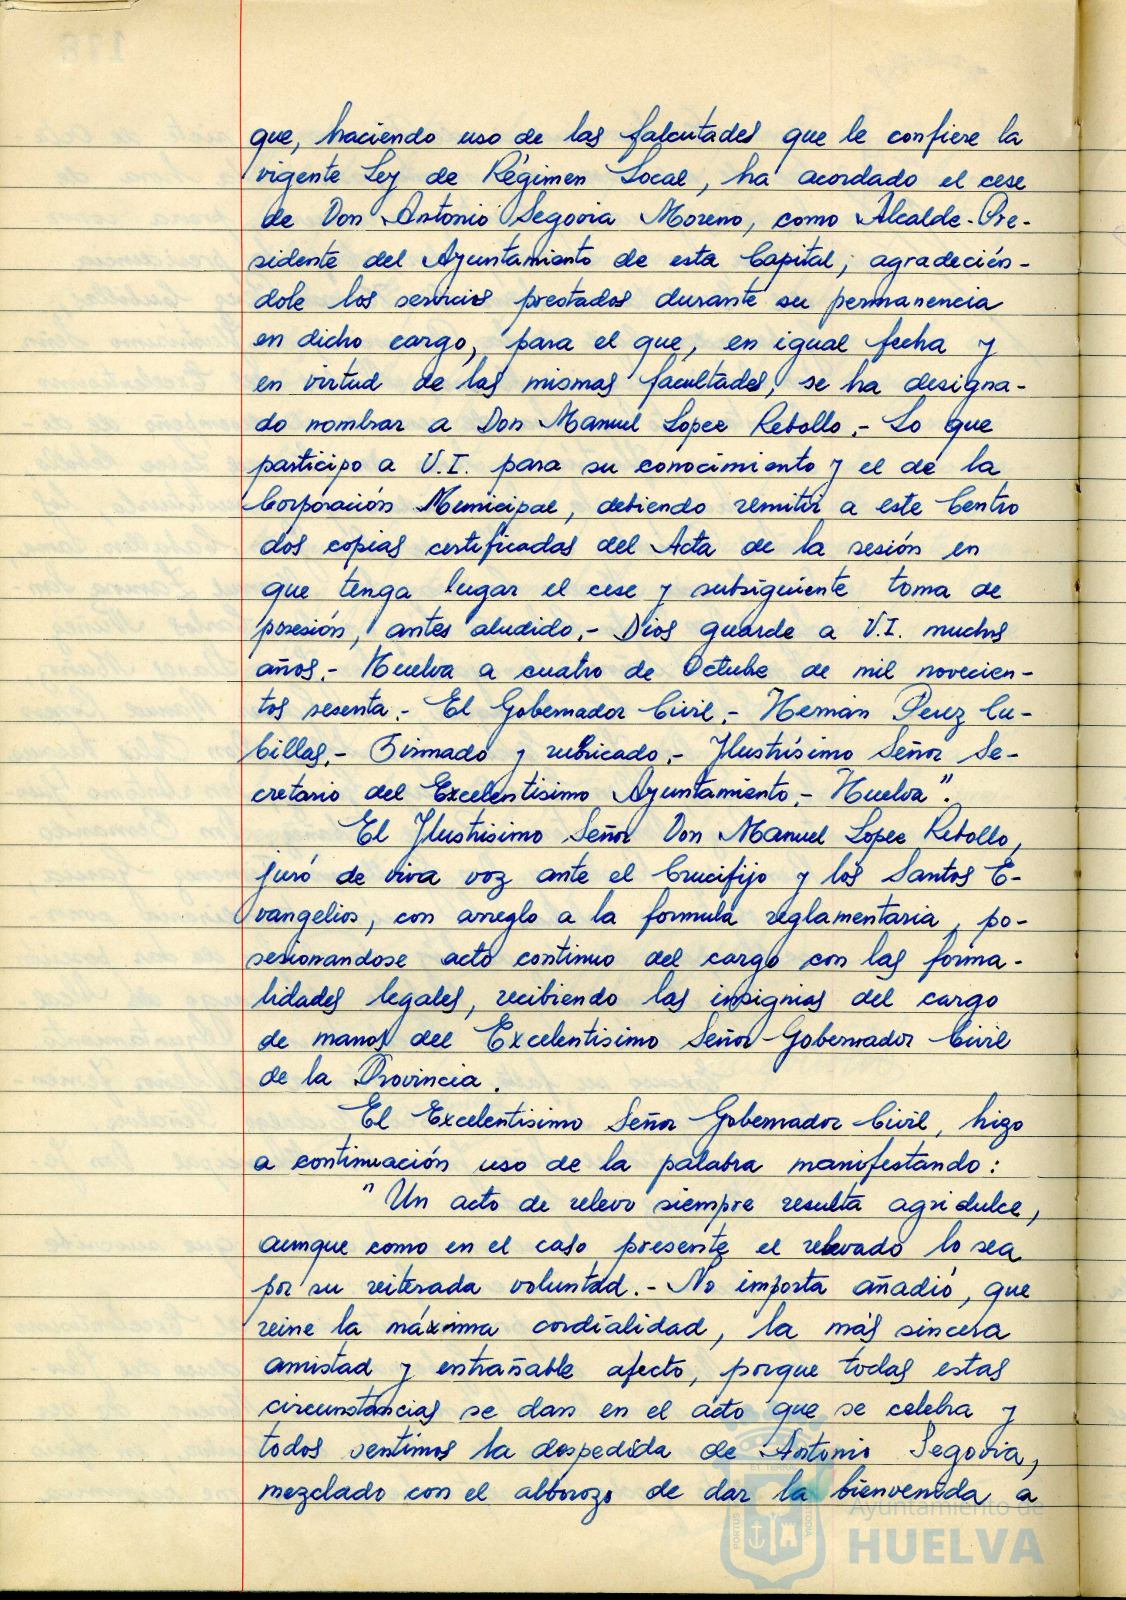 que, haciendo uso de las falcutades que le confiere la
vigente Ley de Régimen Local, ha acordado el cese
de Don Antonio Segovia Moreno, como Alcalde-Pre-
sidente del Ayuntamiento de esta Capital; agradecién-
dole los servicios prestados durante su permanencia
en dicho cargo, para el que, en igual fecha y
en virtud de las mismas facultades, se ha designa-
do nombrar a Don Manuel Lopez Rebollo.- Lo que
participo a V.I. para su conocimiento y el de la
Corporación Municipal, debiendo remitir a este Centro
dos copias certificadas del Acta de la sesión en
que tenga lugar el cese y subsiguiente toma de
posesión, antes aludido.- Dios guarde a V.I. muchos
años.- Huelva a cuatro de Octubre de mil novecien-
tos sesenta.- El Gobernador Civil.- Hernán Perez Cu-
billas.- Firmado y rubricado.- Ilustrísimo Señor Se-
cretario del Excelentisimo Ayuntamiento.- Huelva".
El Ilustrisimo Señor Don Manuel Lopez Rebollo,
juró de viva voz ante el Crucifijo y los Santos E-
vangelios, con arreglo a la formula reglamentaria, po-
sesionandose acto continuo del cargo con las forma-
lidades legales, recibiendo las insignias del cargo
de manos del Excelentisimo Señor Gobernador Civil
de la Provincia.
El Excelentisimo Señor Gobernador Civil, hizo
a continuación uso de la palabra manifestando:
"Un acto de relevo siempre resulta agridulce,
aunque como en el caso presente el relevado lo sea
por su reiterada voluntad.- No importa añadió, que
reine la máxima cordialidad, la más sincera
amistad y entrañable afecto, porque todas estas
circunstancias se dan en el acto que se celebra y
todos sentimos la despedida de Antonio Segovia,
mezclado con el alborozo de dar la bienvenida a
Ayuntamiento de
HUELVA